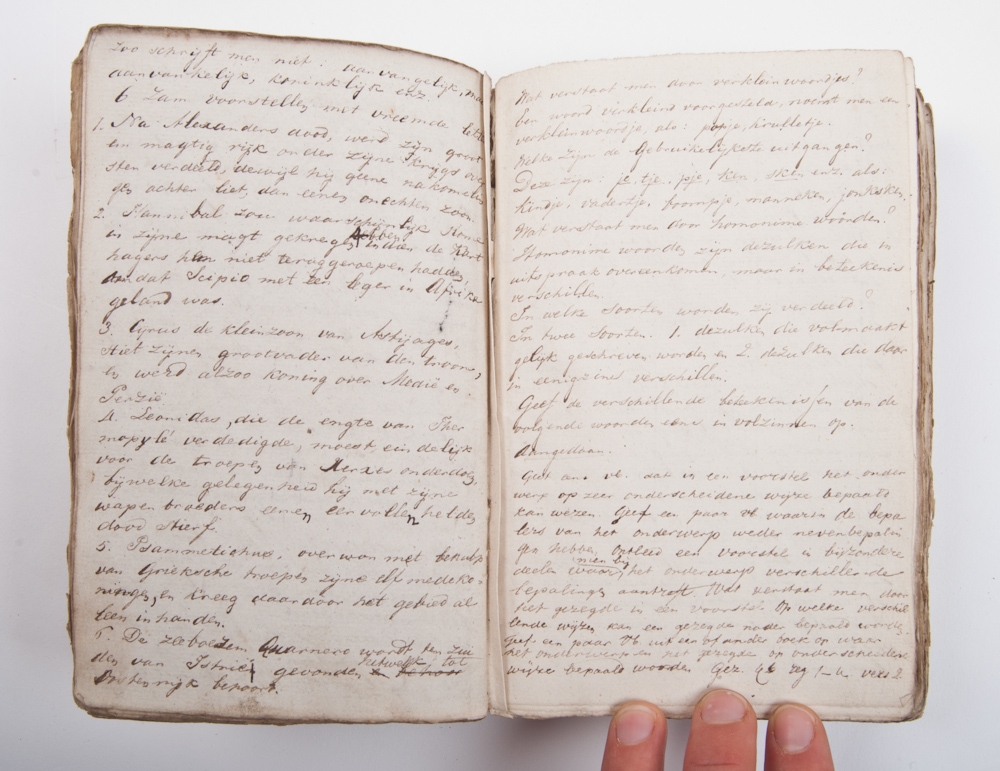 zoo schrijft men niet: aanvangelijk, maar
aanvankelijk, koninklijk enz.
6 Zam voorstellen met vreemde
1. Na Alexanders dood, werd zijn groot
en magtig rijk onder zijne krijgs
sten verdeelt, dewijl hij geene nakomelin
gen achter liet, dan eenen onechten zoon.
2. Hannibal zou waarschijnlijk Rome
in zijne magt gekregen hebben indien de Kart
hagers hem niet teruggeroepen hadden,
dat Scipio met een leger in Afrika
geland was.
3. Cyrus de kleinzoon van Astijages,
stiet zijnen grootvader van den troon,
en werd alzoo koning over Medië en
Perzië.
4. Leonidas, die de engte van Ther
mopylé verdedigde, moest eindelijk
voor de troepen van Xerxes onderdoen,
bij welke gelegenheid hij met zijne
wapenbroeders eenen eervollen helden
dood stierf.
5. Psammetichus, overwon met behulp
van Grieksche troepen zijne elf medeko-
ningen, en kreeg daardoor het gebied al
leen in handen.
6. De zeeboezem Quarnero wordt ten zui
den van Istrië gevonden hetwelk tot
Oostenrijk behoort.
Wat verstaat men door verkleinwoordjes?
Een woord verkleind voorgesteld, noemt men een
verkleinwoordje, als: potje, krulletje.
Welke zijn de gebruikelijkste uitgangen?
Deze zijn: je, tje, pje, ken, sken enz. als:
kindje, vadertje, boompje, manneken, jonksken.
Wat verstaat men door homonime woorden?
Homonime woorden zijn dezulken die in
uitspraak overeenkomen, maar in beteekenis
verschillen.
In welke soorten worden zij verdeeld?
In twee soorten. 1. dezulken die volmaakt
gelijk geschreven worden en 2. dezulken die daar
in eenigzins verschillen.
Geef de verschillende beteekenissen van de
volgende woorden eens in volzinnen op.
Aangedaan.
dat in een voorstel het onder
werp op zeer onderscheidene wijze bepaald
kan wezen. Geef een paar vb waarin de bepa
lers van het onderwerp weder nevenbepalin
gen hebben, Ontleed een voorstel in bijzondere
deelen waar men bij het onderwerp verschillende
bepalingen aantreft. Wat verstaat men door
het gezegde in een voorstel. Op welke verschil
lende wijzen kan een gezegde nader bepaald worden.
Geef een paar vb uit een of ander boek op waar
het onderwerp en het gezegde op onderscheidene
wijze bepaald worden Gez. vers 2